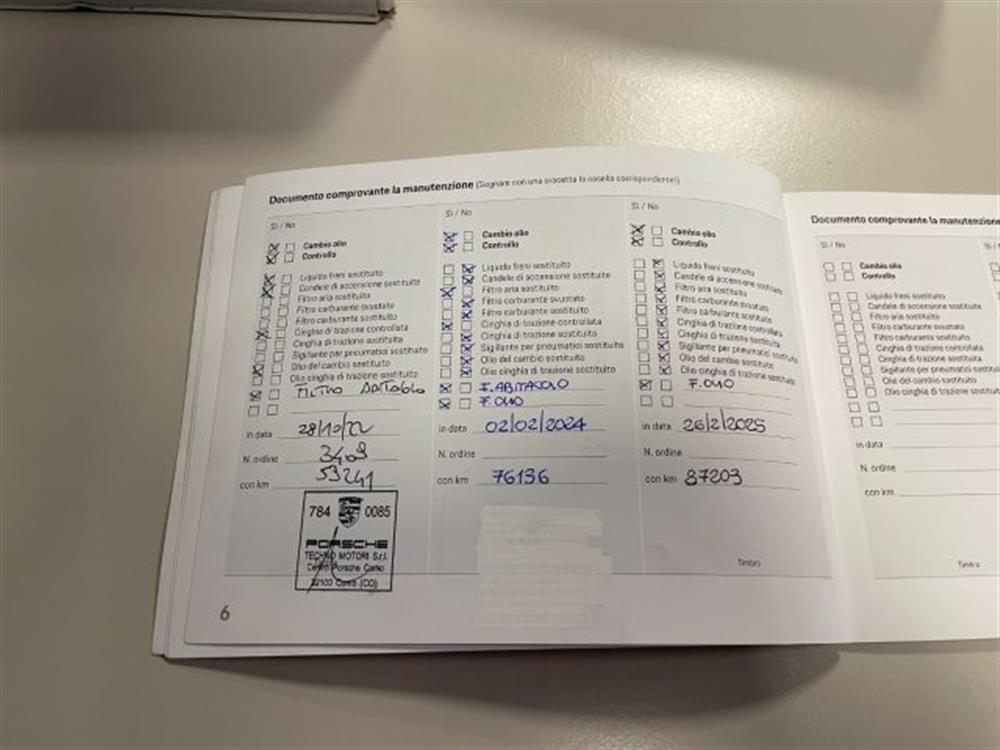 Documento comprovante la manutenzione (Segnare con una crocetta la casella corrispondente!)
Sì / No
Cambio olio
Controllo
Liquido freni sostituito
Candele di accensione sostituite
Filtro aria sostituito
Filtro carburante svuotato
Filtro carburante sostituito
Cinghia di trazione controllata
Cinghia di trazione sostituita
Sigillante per pneumatici sostituito
Olio del cambio sostituito
Olio cinghia di trazione sostituito
FILTRO
in data 28/10/22
N. ordine 3409
con km 53241
784 0085
PORSCHE
TECHNO MOTORI S.r.l.
Centro Porsche Como
22100 Como (CO)
Sì / No
Cambio olio
Controllo
Liquido freni sostituito
Candele di accensione sostituite
Filtro aria sostituito
Filtro carburante svuotato
Filtro carburante sostituito
Cinghia di trazione controllata
Cinghia di trazione sostituita
Sigillante per pneumatici sostituito
Olio del cambio sostituito
Olio cinghia di trazione sostituito
F. ABITACOLO
F. OLIO
in data 02/02/2024
N. ordine
con km 76136
Sì / No
Cambio olio
Controllo
Liquido freni sostituito
Candele di accensione sostituite
Filtro aria sostituito
Filtro carburante svuotato
Filtro carburante sostituito
Cinghia di trazione controllata
Cinghia di trazione sostituita
Sigillante per pneumatici sostituito
Olio del cambio sostituito
Olio cinghia di trazione sostituito
F. OLIO
in data 26/2/2025
N. ordine
con km 87203
Timbro
6
Documento comprovante la manutenzione
Sì / No
Cambio olio
Controllo
Liquido freni sostituito
Candele di accensione sostituite
Filtro aria sostituito
Filtro carburante svuotato
Filtro carburante sostituito
Cinghia di trazione controllata
Cinghia di trazione sostituita
Sigillante per pneumatici sostituito
Olio del cambio sostituito
Olio cinghia di trazione sostituito
in data
N. ordine
con km
Timbro